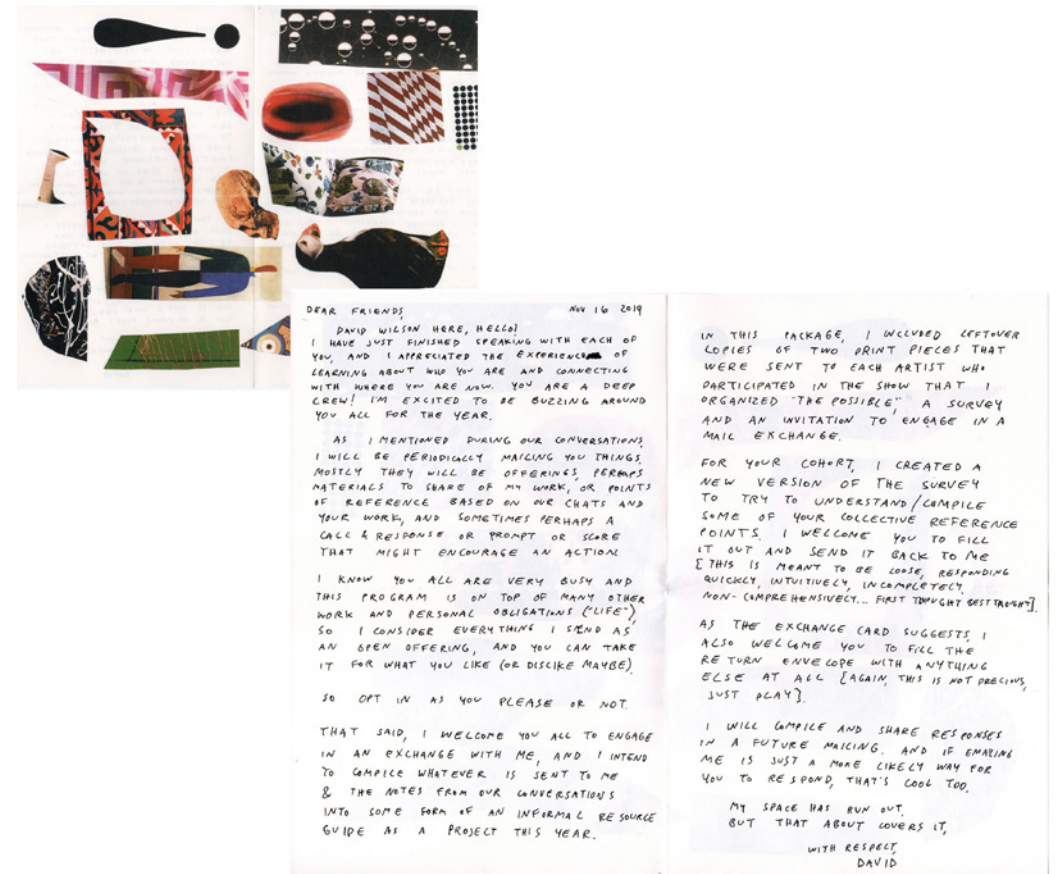 DEAR FRIENDS, NOV 16 2019
DAVID WILSON HERE, HELLO!
I HAVE JUST FINISHED SPEAKING WITH EACH OF
YOU, AND I APPRECIATED THE EXPERIENCE OF
LEARNING ABOUT WHO YOU ARE AND CONNECTING
WITH WHERE YOU ARE NOW. YOU ARE A DEEP
CREW! I'M EXCITED TO BE BUZZING AROUND
YOU ALL FOR THE YEAR.
AS I MENTIONED DURING OUR CONVERSATIONS,
I WILL BE PERIODICALLY MAILING YOU THINGS.
MOSTLY THEY WILL BE OFFERINGS, PERHAPS
MATERIALS TO SHARE OF MY WORK, OR POINTS
OF REFERENCE BASED ON OUR CHATS AND
YOUR WORK, AND SOMETIMES PERHAPS A
CALL & RESPONSE OR PROMPT OR SCORE
THAT MIGHT ENCOURAGE AN ACTION.
I KNOW YOU ALL ARE VERY BUSY AND
THIS PROGRAM IS ON TOP OF MANY OTHER
WORK AND PERSONAL OBLIGATIONS ("LIFE"),
SO I CONSIDER EVERYTHING I SEND AS
AN OPEN OFFERING, AND YOU CAN TAKE
IT FOR WHAT YOU LIKE (OR DISLIKE MAYBE).
SO OPT IN AS YOU PLEASE OR NOT.
THAT SAID, I WELCOME YOU ALL TO ENGAGE
IN AN EXCHANGE WITH ME, AND I INTEND
TO COMPILE WHATEVER IS SENT TO ME
& THE NOTES FROM OUR CONVERSATIONS
INTO SOME FORM OF AN INFORMAL RESOURCE
GUIDE AS A PROJECT THIS YEAR.
IN THIS PACKAGE, I INCLUDED LEFTOVER
COPIES OF TWO PRINT PIECES THAT
WERE SENT TO EACH ARTIST WHO
PARTICIPATED IN THE SHOW THAT I
ORGANIZED "THE POSSIBLE", A SURVEY
AND AN INVITATION TO ENGAGE IN A
MAIL EXCHANGE.
FOR YOUR COHORT, I CREATED A
NEW VERSION OF THE SURVEY
TO TRY TO UNDERSTAND/COMPILE
SOME OF YOUR COLLECTIVE REFERENCE
POINTS. I WELCOME YOU TO FILL
IT OUT AND SEND IT BACK TO ME
[THIS IS MEANT TO BE LOOSE, RESPONDING
QUICKLY, INTUITIVELY, INCOMPLETELY,
NON-COMPREHENSIVELY... FIRST THOUGHT BEST THOUGHT].
AS THE EXCHANGE CARD SUGGESTS, I
ALSO WELCOME YOU TO FILL THE
RETURN ENVELOPE WITH ANYTHING
ELSE AT ALL [AGAIN, THIS IS NOT PRECIOUS,
JUST PLAY].
I WILL COMPILE AND SHARE RESPONSES
IN A FUTURE MAILING. AND IF EMAILING
ME IS JUST A MORE LIKELY WAY FOR
YOU TO RESPOND, THAT'S COOL TOO.
MY SPACE HAS RUN OUT.
BUT THAT ABOUT COVERS IT,
WITH RESPECT,
DAVID